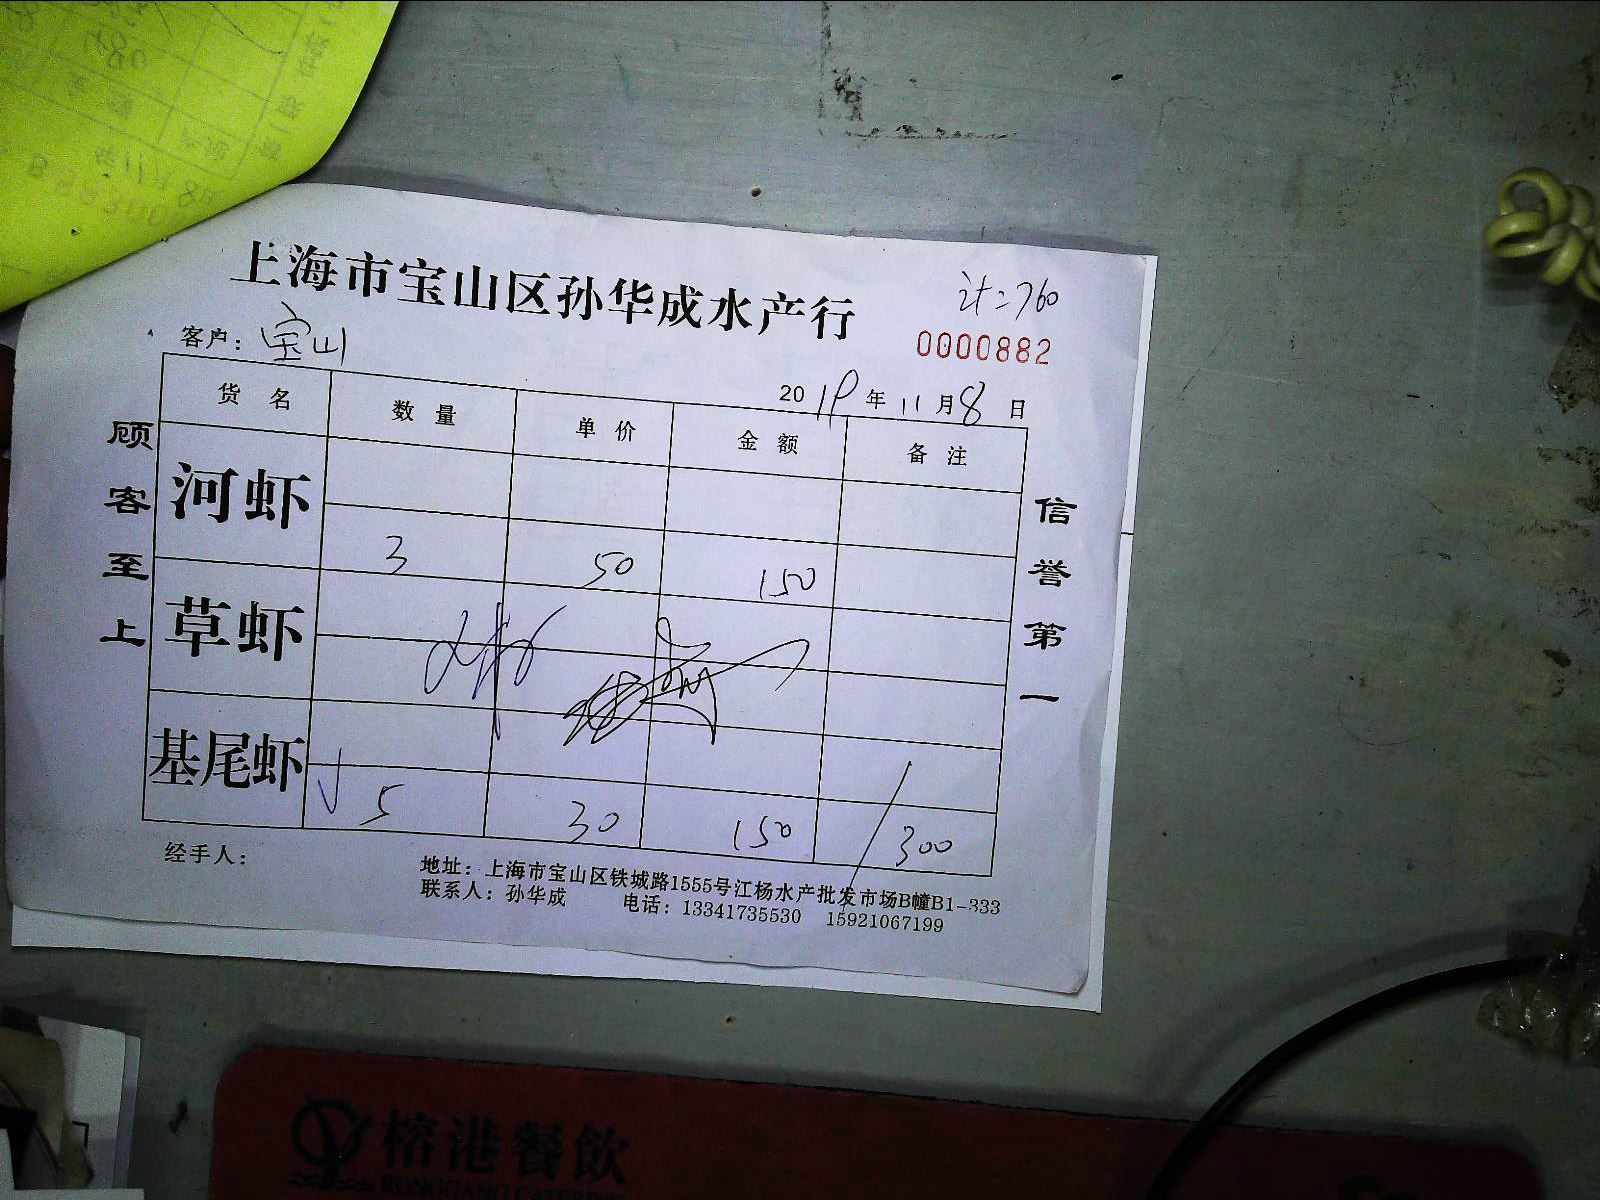 上海市宝山区孙华成水产行
计=760
0000882
客户：宝山
2019年11月8日
货名 数量 单价 金额 备注
河虾
3 50 150
草虾
基尾虾
√ 5 30 150 / 300
顾客至上
信誉第一
经手人：
地址：上海市宝山区铁城路1555号江杨水产批发市场B幢B1-333
联系人：孙华成 电话：13341735530 15921067199
榕港餐飲
RONGGANG CATERING